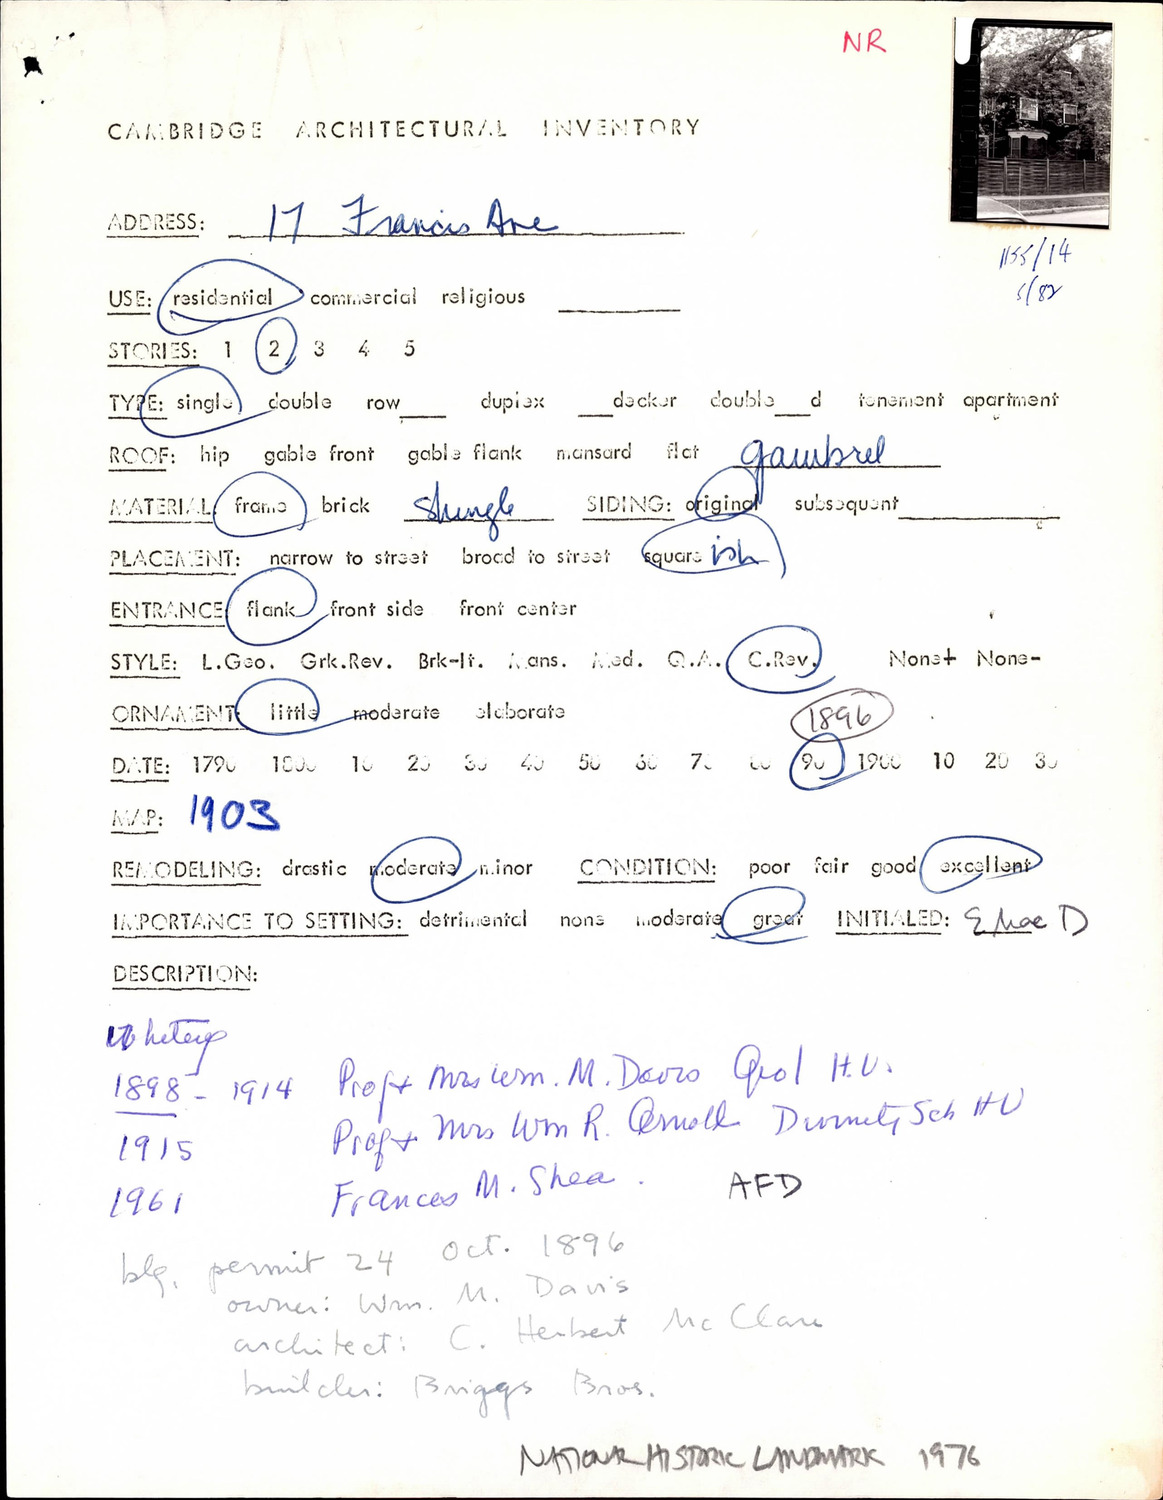 NR
CAMBRIDGE ARCHITECTURAL INVENTORY
ADDRESS: 17 Francis Ave
1155/14
5/82
USE: residential commercial religious
STORIES: 1 2 3 4 5
TYPE: single double row___ duplex ___decker double___d tenement apartment
ROOF: hip gable front gable flank mansard flat gambrel
MATERIAL: frame brick shingle SIDING: original subsequent
PLACEMENT: narrow to street broad to street square ish
ENTRANCE: flank front side front center
STYLE: L.Geo. Grk.Rev. Brk-It. Mans. Med. Q.A. C.Rev. None+ None-
ORNAMENT: little moderate elaborate
1896
DATE: 1790 1800 10 20 30 40 50 60 70 80 90 1900 10 20 30
MAP: 1903
REMODELING: drastic moderate minor CONDITION: poor fair good excellent
IMPORTANCE TO SETTING: detrimental none moderate great INITIALED: E Mac D
DESCRIPTION:
1898 - 1914 Prof + Mrs Wm. M. Davis Geol H.U.
1915 Prof + Mrs Wm R. Arnold Divinity Sch HU
1961 Frances M. Shea. AFD
blg. permit 24 Oct. 1896
owner: Wm. M. Davis
architect: C. Herbert McClare
builder: Briggs Bros.
NATIONAL HISTORIC LANDMARK 1976